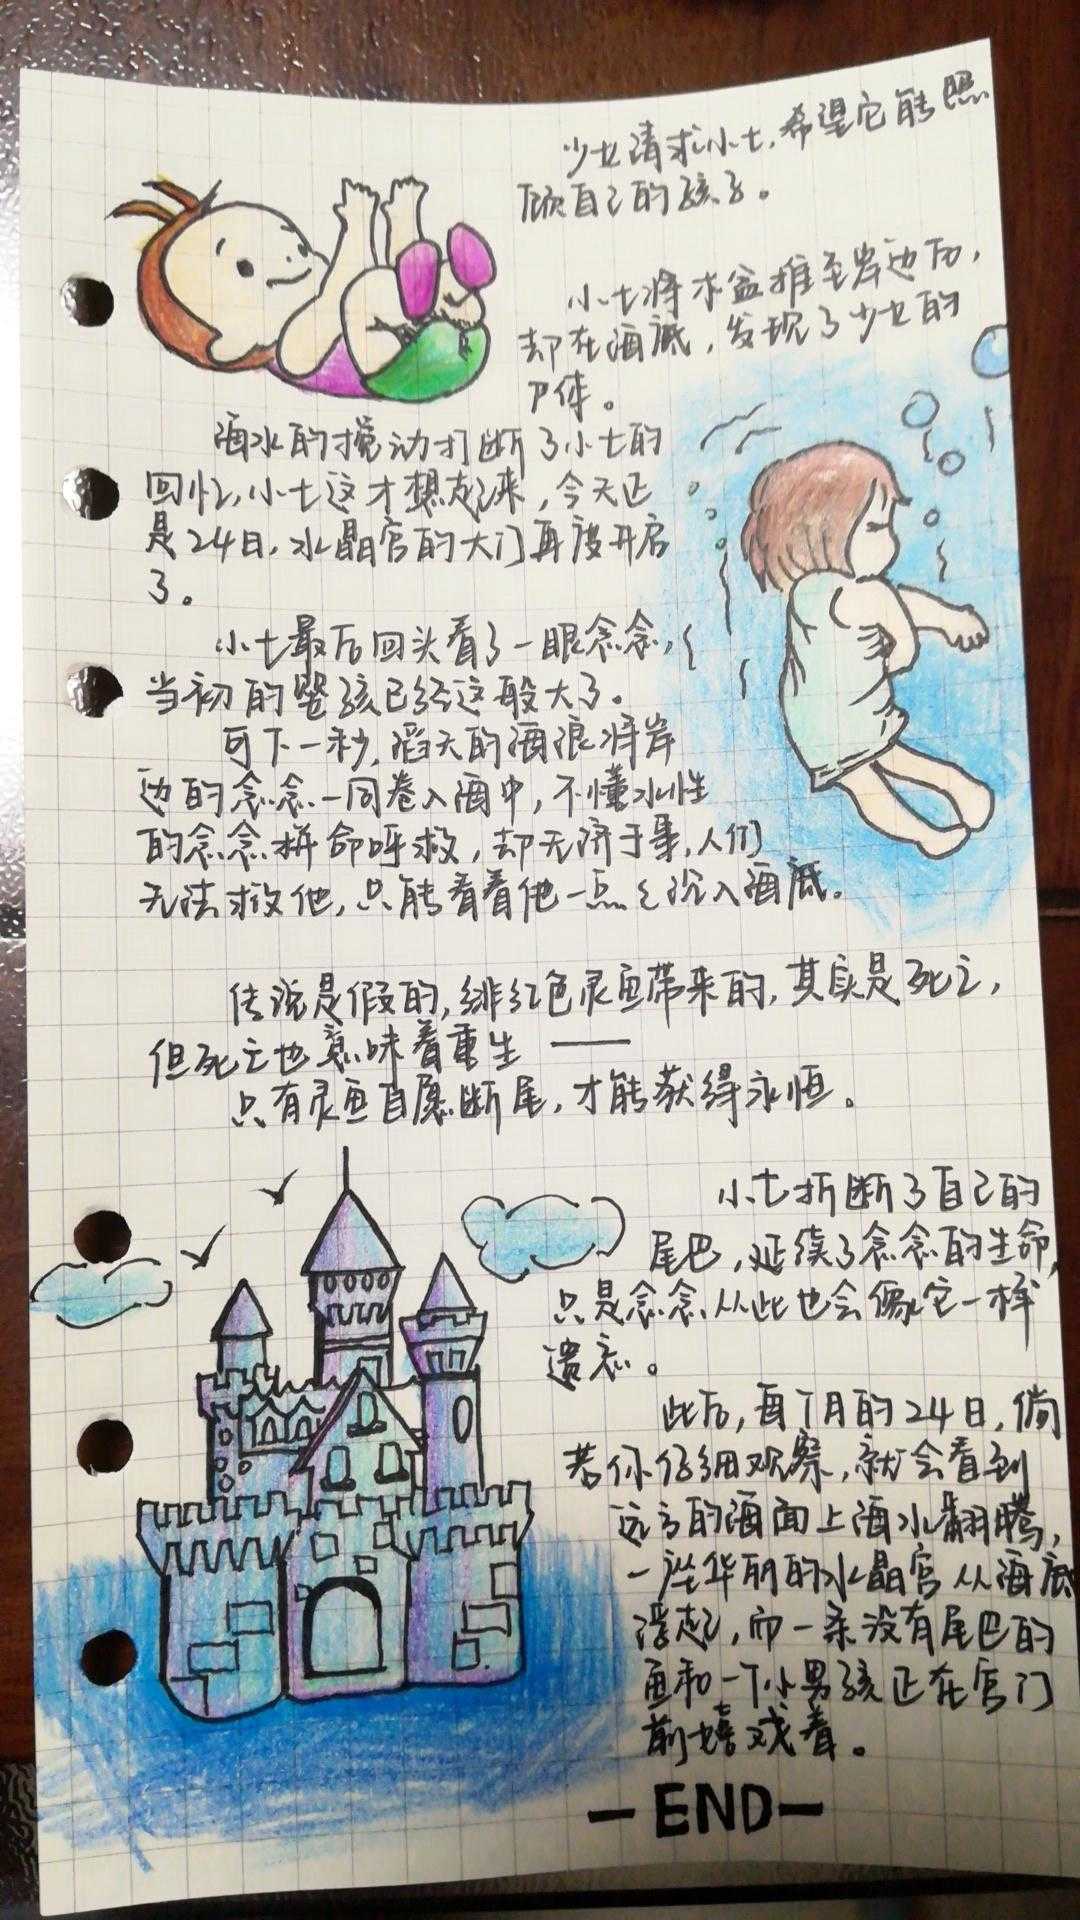 少女请求小七,希望它能照
顾自己的孩子。
小七将木盆推至岸边后,
却在海底,发现了少女的
尸体。
海水的搅动打断了小七的
回忆,小七这才想起来,今天正
是24日,水晶宫的大门再度开启
了。
小七最后回头看了一眼念念,
当初的婴孩已经这般大了。
可下一秒,滔天的海浪将岸
边的念念一同卷入海中,不懂水性
的念念拼命呼救,却无济于事,人们
无法救他,只能看着他一点点沉入海底。
传说是假的,绯红色灵鱼带来的,其实是死亡,
但死亡也意味着重生——
只有灵鱼自愿断尾,才能获得永恒。
小七折断了自己的
尾巴,延续了念念的生命,
只是念念从此也会像它一样
遗忘。
此后,每个月的24日,倘
若你仔细观察,就会看到
远方的海面上海水翻腾,
一座华丽的水晶宫从海底
浮起,而一条没有尾巴的
鱼和一个小男孩正在宫门
前嬉戏着。
—END—